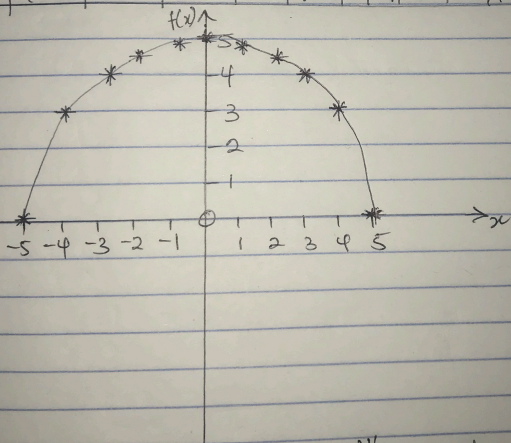 f(x)
5
4
3
2
1
x
-5 -4 -3 -2 -1 0 1 2 3 4 5